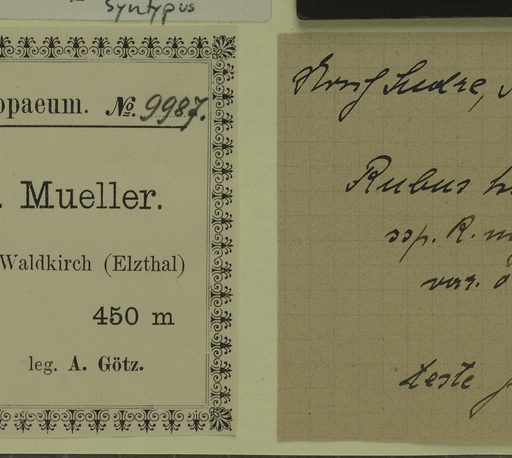 Syntypus
opaeum. №. 9987.
. Mueller.
Waldkirch (Elzthal)
450 m
leg. A. Götz.
Sudre,
Rubus
ssp. R.
var.
teste